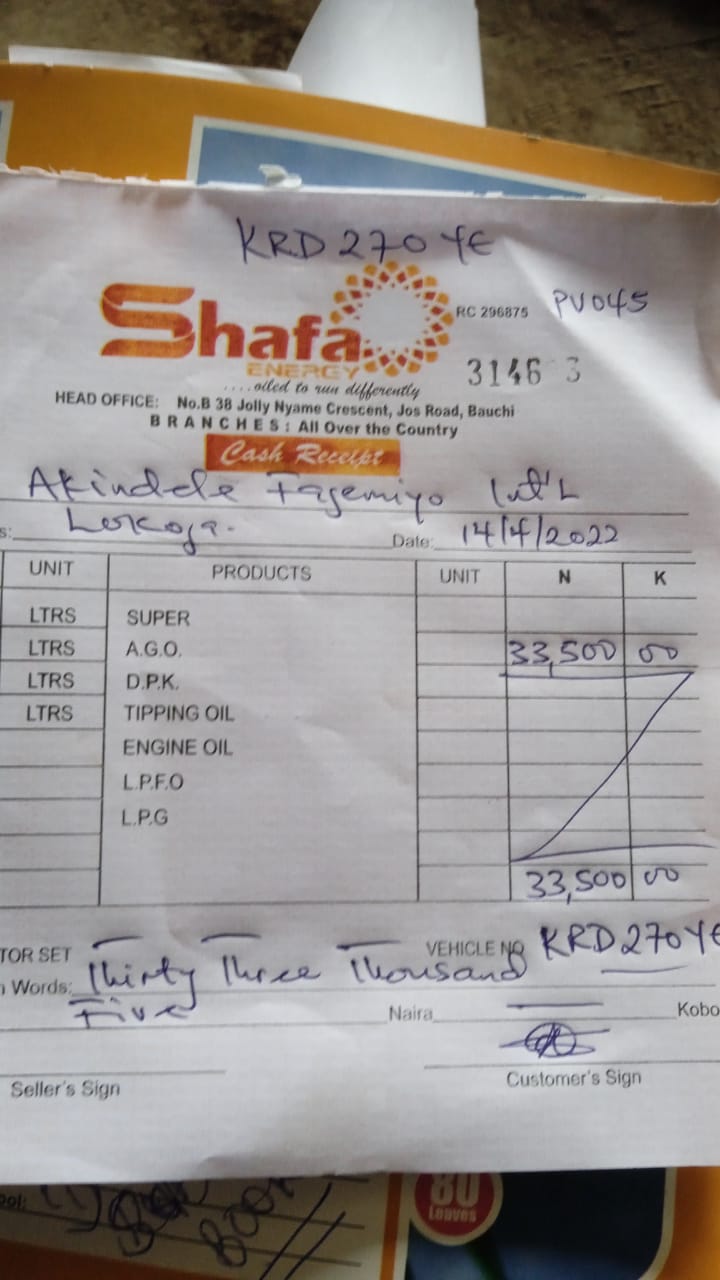 KRD 270 YE
Shafa
ENERGY
RC 296875 PV045
....oiled to run differently
3146 3
HEAD OFFICE: No.B 38 Jolly Nyame Crescent, Jos Road, Bauchi
BRANCHES: All Over the Country
Cash Receipt
Akindele Fasemiyo Int'L
s: Lokoja. Date: 14/4/2022
UNIT PRODUCTS UNIT N K
LTRS SUPER
LTRS A.G.O. 33,500 00
LTRS D.P.K.
LTRS TIPPING OIL
ENGINE OIL
L.P.F.O
L.P.G
33,500 00
TOR SET VEHICLE NO KRD 270 YE
n Words: Thirty Three Thousand
Five Naira Kobo
Seller's Sign Customer's Sign
80
Leaves